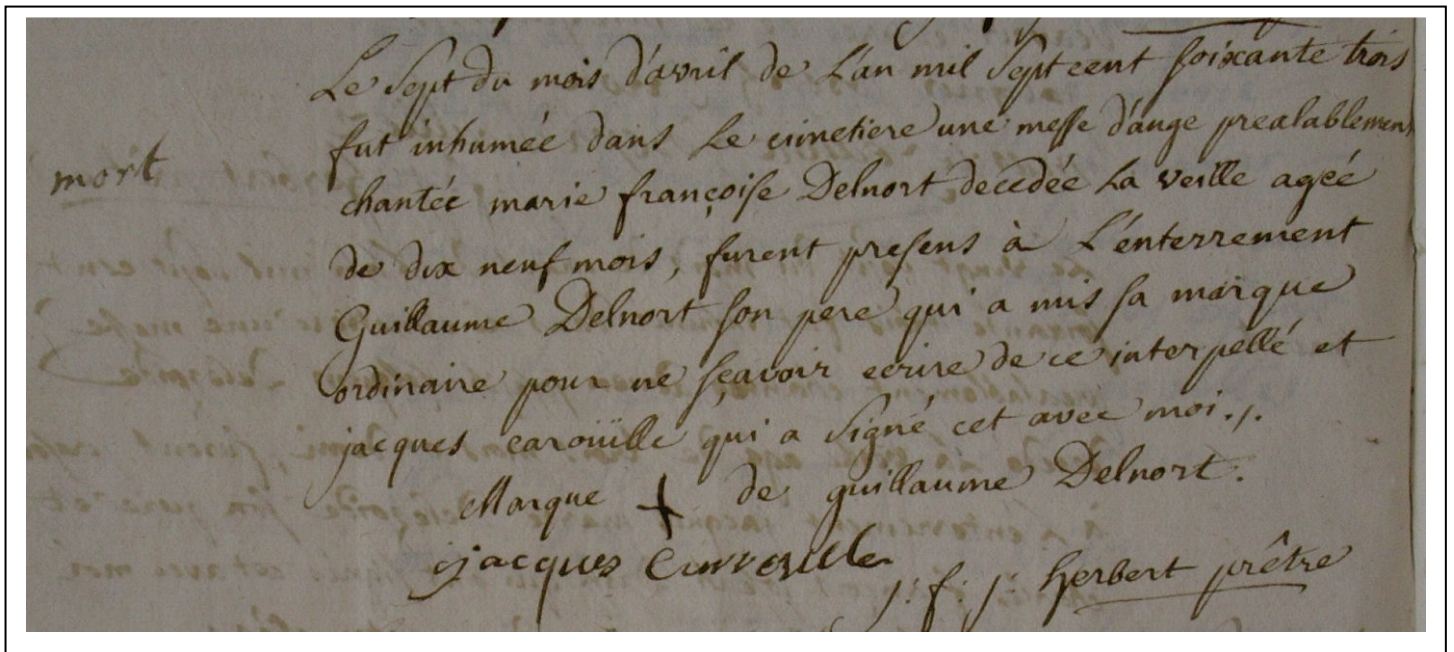 Le sept du mois d'avril de L'an mil sept cent soixante trois
fut inhumée dans Le cimetiere une messe d'ange prealablement
mort
chantée marie françoise Delnort decedée La veille agée
de dix neuf mois, furent presens à L'enterrement
Guillaume Delnort son pere qui a mis sa marque
ordinaire pour ne sçavoir ecrire de ce interpellé et
jacques carouïlle qui a signé cet avec moi./.
Marque + de guillaume Delnort.
jacques Carroulle
j: f: j: herbert prêtre